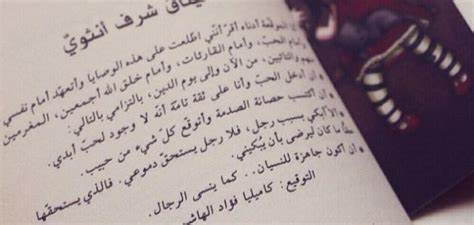 ميثاق شرف أنثوي
أنا الموقّعة أدناه أقرّ أنني اطلعت على هذه الوصايا وأتعهد أمام نفسي
وأمام الحبّ، وأمام القارئات، وأمام خلق الله أجمعين، المغرمين
منهم والتائبين، من الآن وإلى يوم الدين، بالتزامي بالتالي:
ـ أن أدخل الحبّ وأنا على ثقة تامّة أنه لا وجود لحبّ أبدي.
ـ أن أكتسب حصانة الصدمة وأتوقع كلّ شيء من حبيب.
ـ ألا أبكي بسبب رجل، فلا رجل يستحقّ دموعي. فالذي يستحقّها
ما كان ليرضى بأن يُبكيني.
ـ أن أكون جاهزة للنسيان.. كما ينسى الرجال.
التوقيع: كاميليا فؤاد الهاشـ